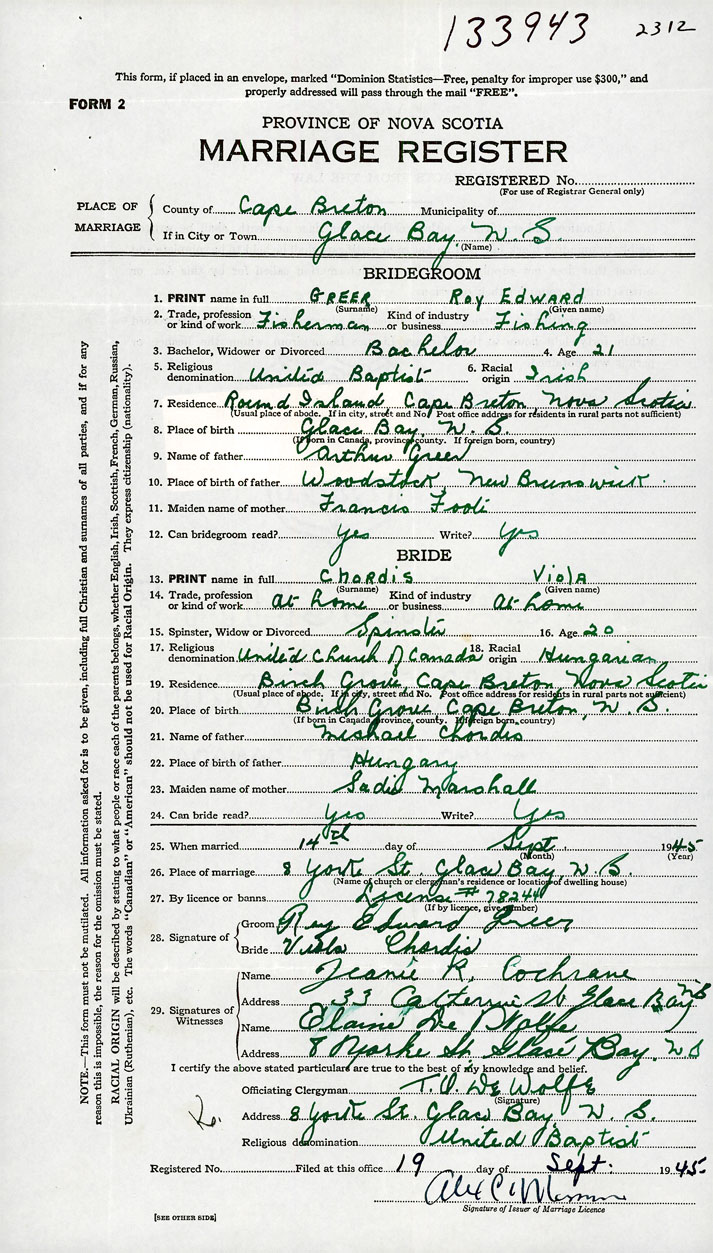 133943 2312
This form, if placed in an envelope, marked "Dominion Statistics—Free, penalty for improper use $300," and
properly addressed will pass through the mail "FREE".
FORM 2
PROVINCE OF NOVA SCOTIA
MARRIAGE REGISTER
REGISTERED No.
(For use of Registrar General only)
PLACE OF MARRIAGE
County of Cape Breton Municipality of
If in City or Town Glace Bay, N. S.
(Name)
BRIDEGROOM
1. PRINT name in full GREER Roy EDWARD
(Surname) (Given name)
2. Trade, profession or kind of work Fisherman Kind of industry or business Fishing
3. Bachelor, Widower or Divorced Bachelor 4. Age 21
5. Religious denomination United Baptist 6. Racial origin Irish
7. Residence Round Island Cape Breton Nova Scotia
(Usual place of abode. If in city, street and No. Post office address for residents in rural parts not sufficient)
8. Place of birth Glace Bay, N. S.
(If born in Canada, province, county. If foreign born, country)
9. Name of father Arthur Greer
10. Place of birth of father Woodstock, New Brunswick
11. Maiden name of mother Francis Foote
12. Can bridegroom read? Yes Write? Yes
BRIDE
13. PRINT name in full CHORDIS VIOLA
(Surname) (Given name)
14. Trade, profession or kind of work at home Kind of industry or business at home
15. Spinster, Widow or Divorced Spinster 16. Age 20
17. Religious denomination United Church of Canada 18. Racial origin Hungarian
19. Residence Birch Grove, Cape Breton, Nova Scotia
(Usual place of abode. If in city, street and No. Post office address for residents in rural parts not sufficient)
20. Place of birth Birch Grove Cape Breton, N. S.
(If born in Canada, province, county. If foreign born, country)
21. Name of father Michael Chordis
22. Place of birth of father Hungary
23. Maiden name of mother Sadie Marshall
24. Can bride read? Yes Write? Yes
25. When married 14th day of Sept. 1945
(Month) (Year)
26. Place of marriage 8 Yorke St. Glace Bay, N. S.
(Name of church or clergyman's residence or location of dwelling house)
27. By licence or banns License # 78244
(If by licence, give number)
28. Signature of
Groom Roy Edward Greer
Bride Viola Chordis
29. Signatures of Witnesses
Name Jeanie R. Cochrane
Address 33 Catherine St Glace Bay NS
Name Elaine De Wolfe
Address 8 Yorke St Glace Bay, N S
I certify the above stated particulars are true to the best of my knowledge and belief.
Officiating Clergyman T. O. De Wolfe
(Signature)
Address 8 Yorke St. Glace Bay, N. S.
Religious denomination United Baptist
Registered No. Filed at this office 19 day of Sept. 1945
Signature of Issuer of Marriage Licence
[SEE OTHER SIDE]
NOTE.—This form must not be mutilated. All information asked for is to be given, including full Christian and surnames of all parties, and if for any
reason this is impossible, the reason for the omission must be stated.
RACIAL ORIGIN will be described by stating to what people or race each of the parents belongs, whether English, Irish, Scottish, French, German, Russian,
Ukrainian (Ruthenian), etc. The words "Canadian" or "American" should not be used for Racial Origin. They express citizenship (nationality).